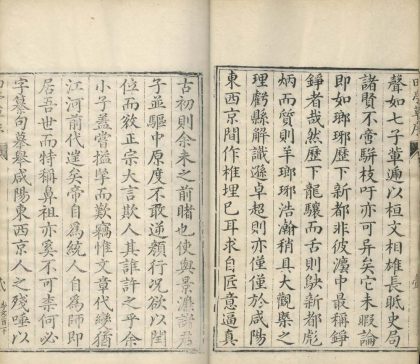 聲如七子輩遞以桓文相雄長眂史局
諸賢不啻駢枝吁亦可異矣它未暇論
即如瑯琊歷下新都非彼瀛中最稱錚
錚者哉然歷下龍驤而古則缺新都彪
炳而質則羊瑯琊浩瀚稍具大觀槩之
理虧縣解識遜卓超則亦僅僅於咸陽
東西京間作椎埋已耳求自匠意逼真
古初則余未之前睹也使與景濂諸君
子並驅中原度不敢逆頡行況欲以閏
位而欲正宗大言欺人其誰許之乎余
小子蓋嘗搤學而歎竊惟文章代變猶
江河前代遑矣帝自為統人自為師即
居吾世而特稱鼻祖亦奚不可柰何必
字摹句摹舉咸陽東西京人之殘唾以